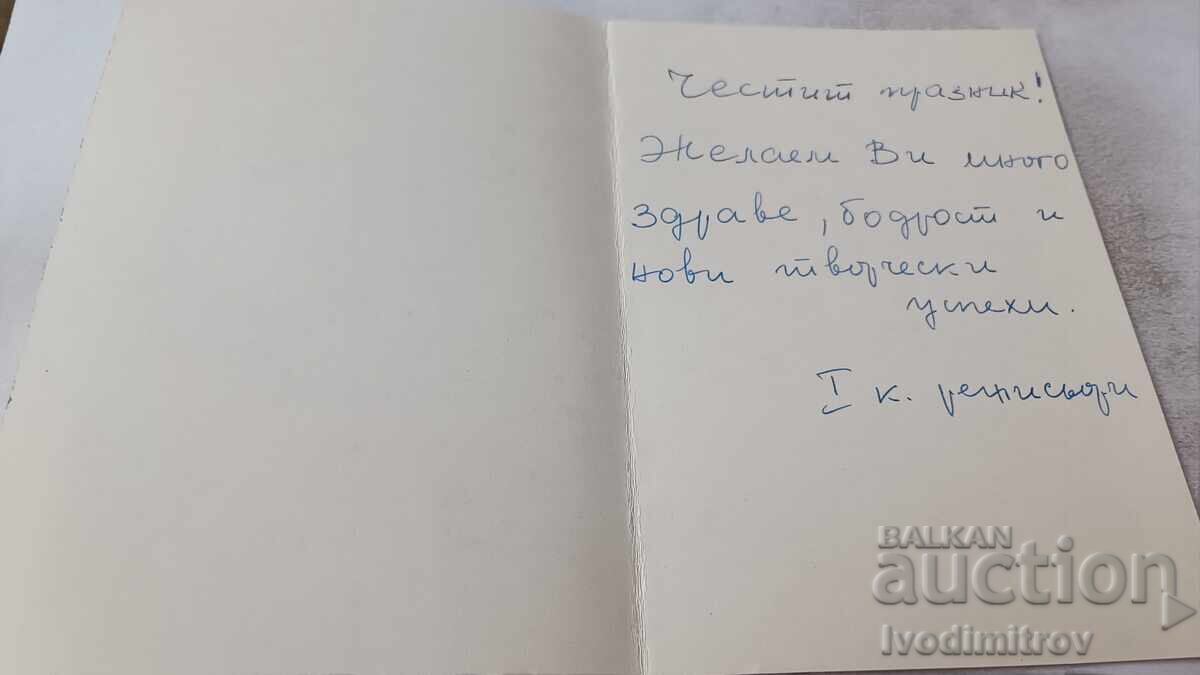 Честит празник!
Желаем Ви много
здраве, бодрост и
нови творчески
успехи.
I к. режисьори
BALKAN
auction
Ivodimitrov